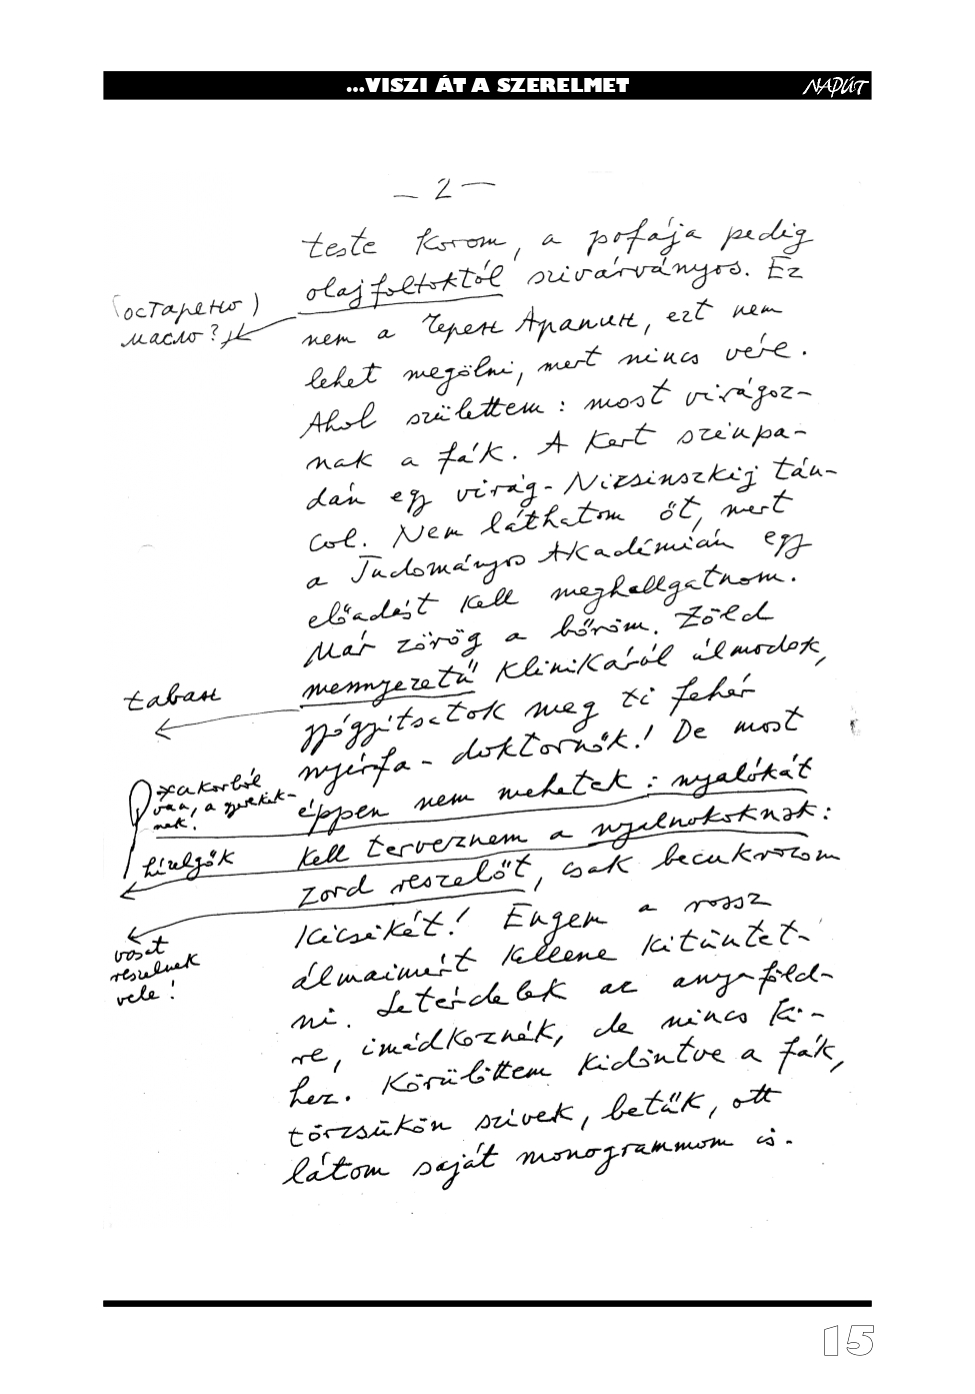 ...VISZI ÁT A SZERELMET
NAPÚT
— 2 —
teste korom, a pofája pedig
olajfoltoktól szivárványos. Ez
(остарено)
масло?
nem a Черен Арапин, ezt nem
lehet megölni, mert nincs vére.
Ahol születtem: most virágoz-
nak a fák. A kert szinpa-
dán egy virág-Nizsinszkij tán-
col. Nem láthatom őt, mert
a Tudományos Akadémián egy
előadást kell meghallgatnom.
Már zörög a bőröm. Zöld
tаван
mennyezetű klinikáról álmodok,
gyógyítsatok meg ti fehér
nyírfa-doktornők! De most
cukorból
van, a gyerekek-
nek!
éppen nem mehetek: nyalókát
hízelgők
kell terveznem a nyalnokoknak:
zord reszelőt, csak becukrozom
kicsikét! Engem a rossz
vasat
reszelnek
vele!
álmaimért kellene kitüntet-
ni. Letérdelek az anyaföld-
re, imádkoznék, de nincs ki-
hez. Körülöttem kidöntve a fák,
törzsükön szivek, betűk, ott
látom saját monogrammom is.
15